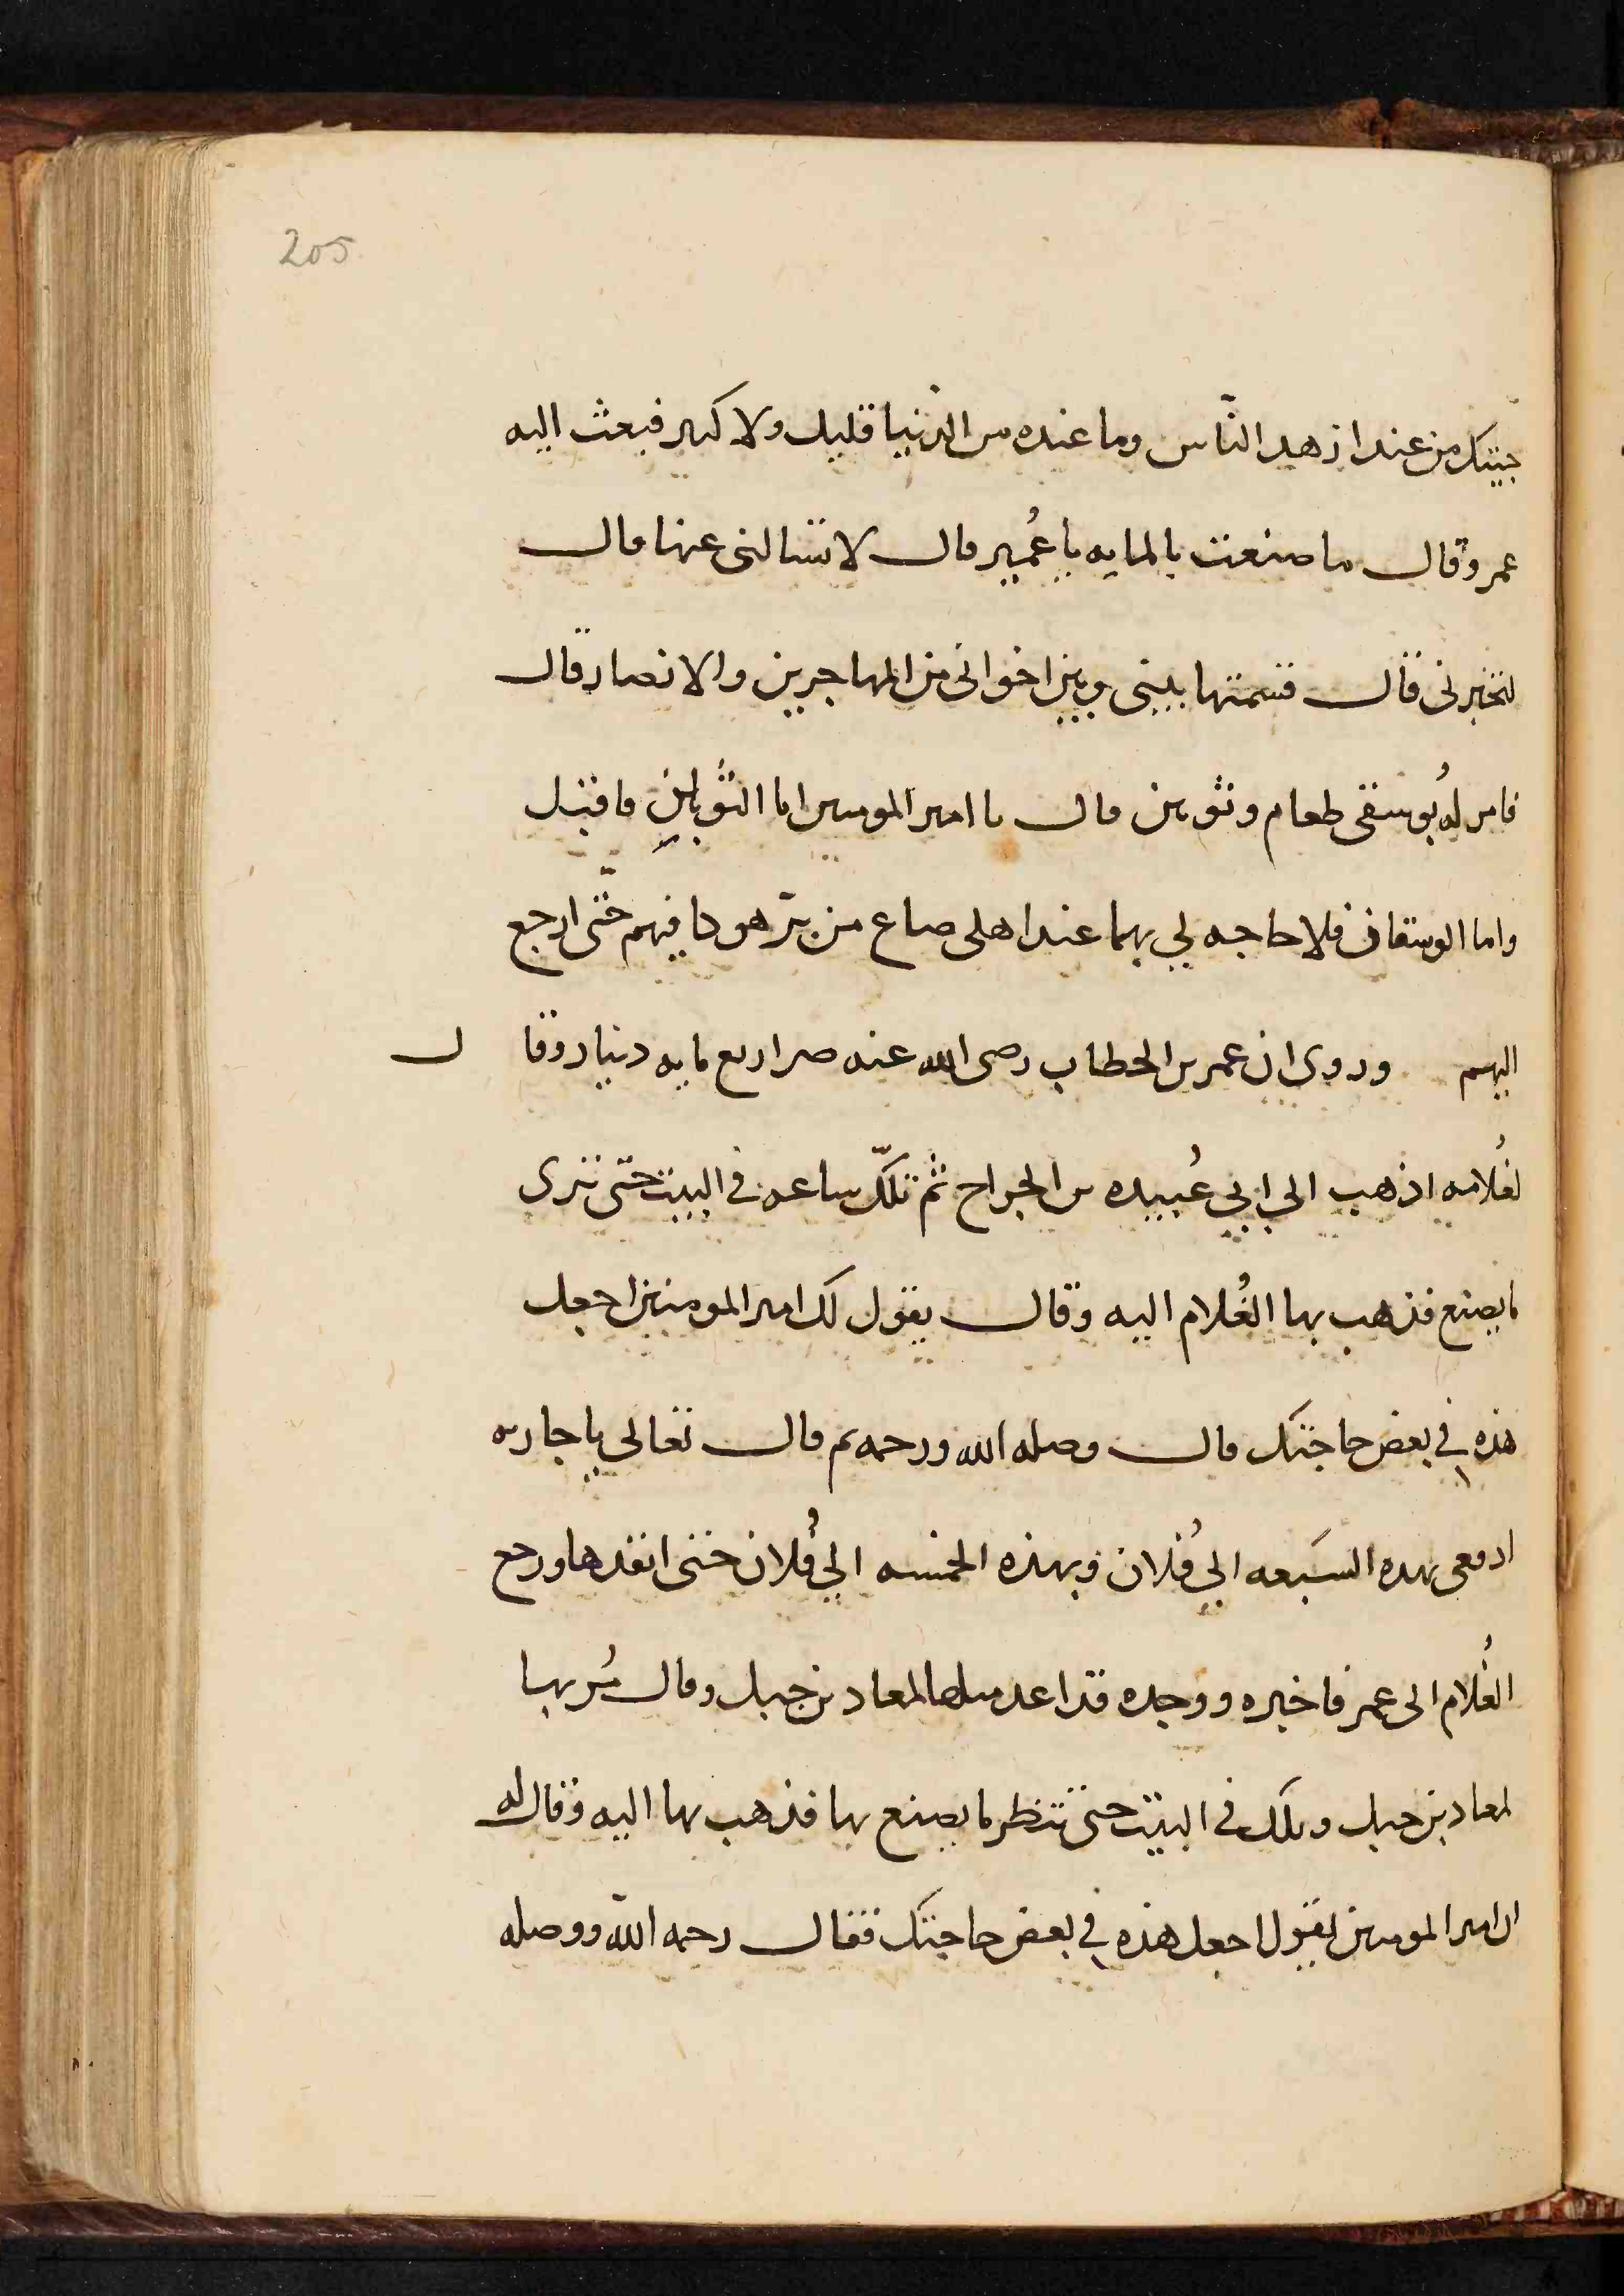 205
جيتك من عند ازهد الناس وما عنده من الدنيا قليل ولا كثير فبعث اليه
عمر وقال ما صنعت بالمايه يا عُمير قال لا تسالنى عنها قال
لتخبرنى قال قسمتها بينى وبين اخوانى من المهاجرين والانصار قال
فامر لهُ بوسقى طعام وثوبين قال يا امير المومنين اما الثوبان فاقبل
واما الوسقان فلا حاجه لي بهما عند اهلى صاع من برّ هو كافيهم حتّى ارجع
اليهم وروى ان عمر بن الخطاب رضى الله عنه صر اربع مايه دينار وقال
لغُلامه اذهب الي ابي عُبيده بن الجراح ثم تلكّ ساعه في البيت حتى ترى
ما يصنع فذهب بها الغُلام اليه وقال يقول لك امير المومنين اجعل
هذه في بعض حاجتك قال وصله الله ورحمه ثم قال تعالى يا جاريه
ادفعى بهذه السَبعه الي فُلان وبهذه الخمسه الي فُلان حتى انفدها ورجع
الغُلام الى عمر فاخبره ووجده قد اعد مثلها لمعاد بن جبل وقال مُر بها
لمعاد بن جبل وتلك في البيت حتى تنظر ما يصنع بها فذهب بها اليه وقال له
ان امير المومنين يقول اجعل هذه في بعض حاجتك فقال رحمه الله ووصله